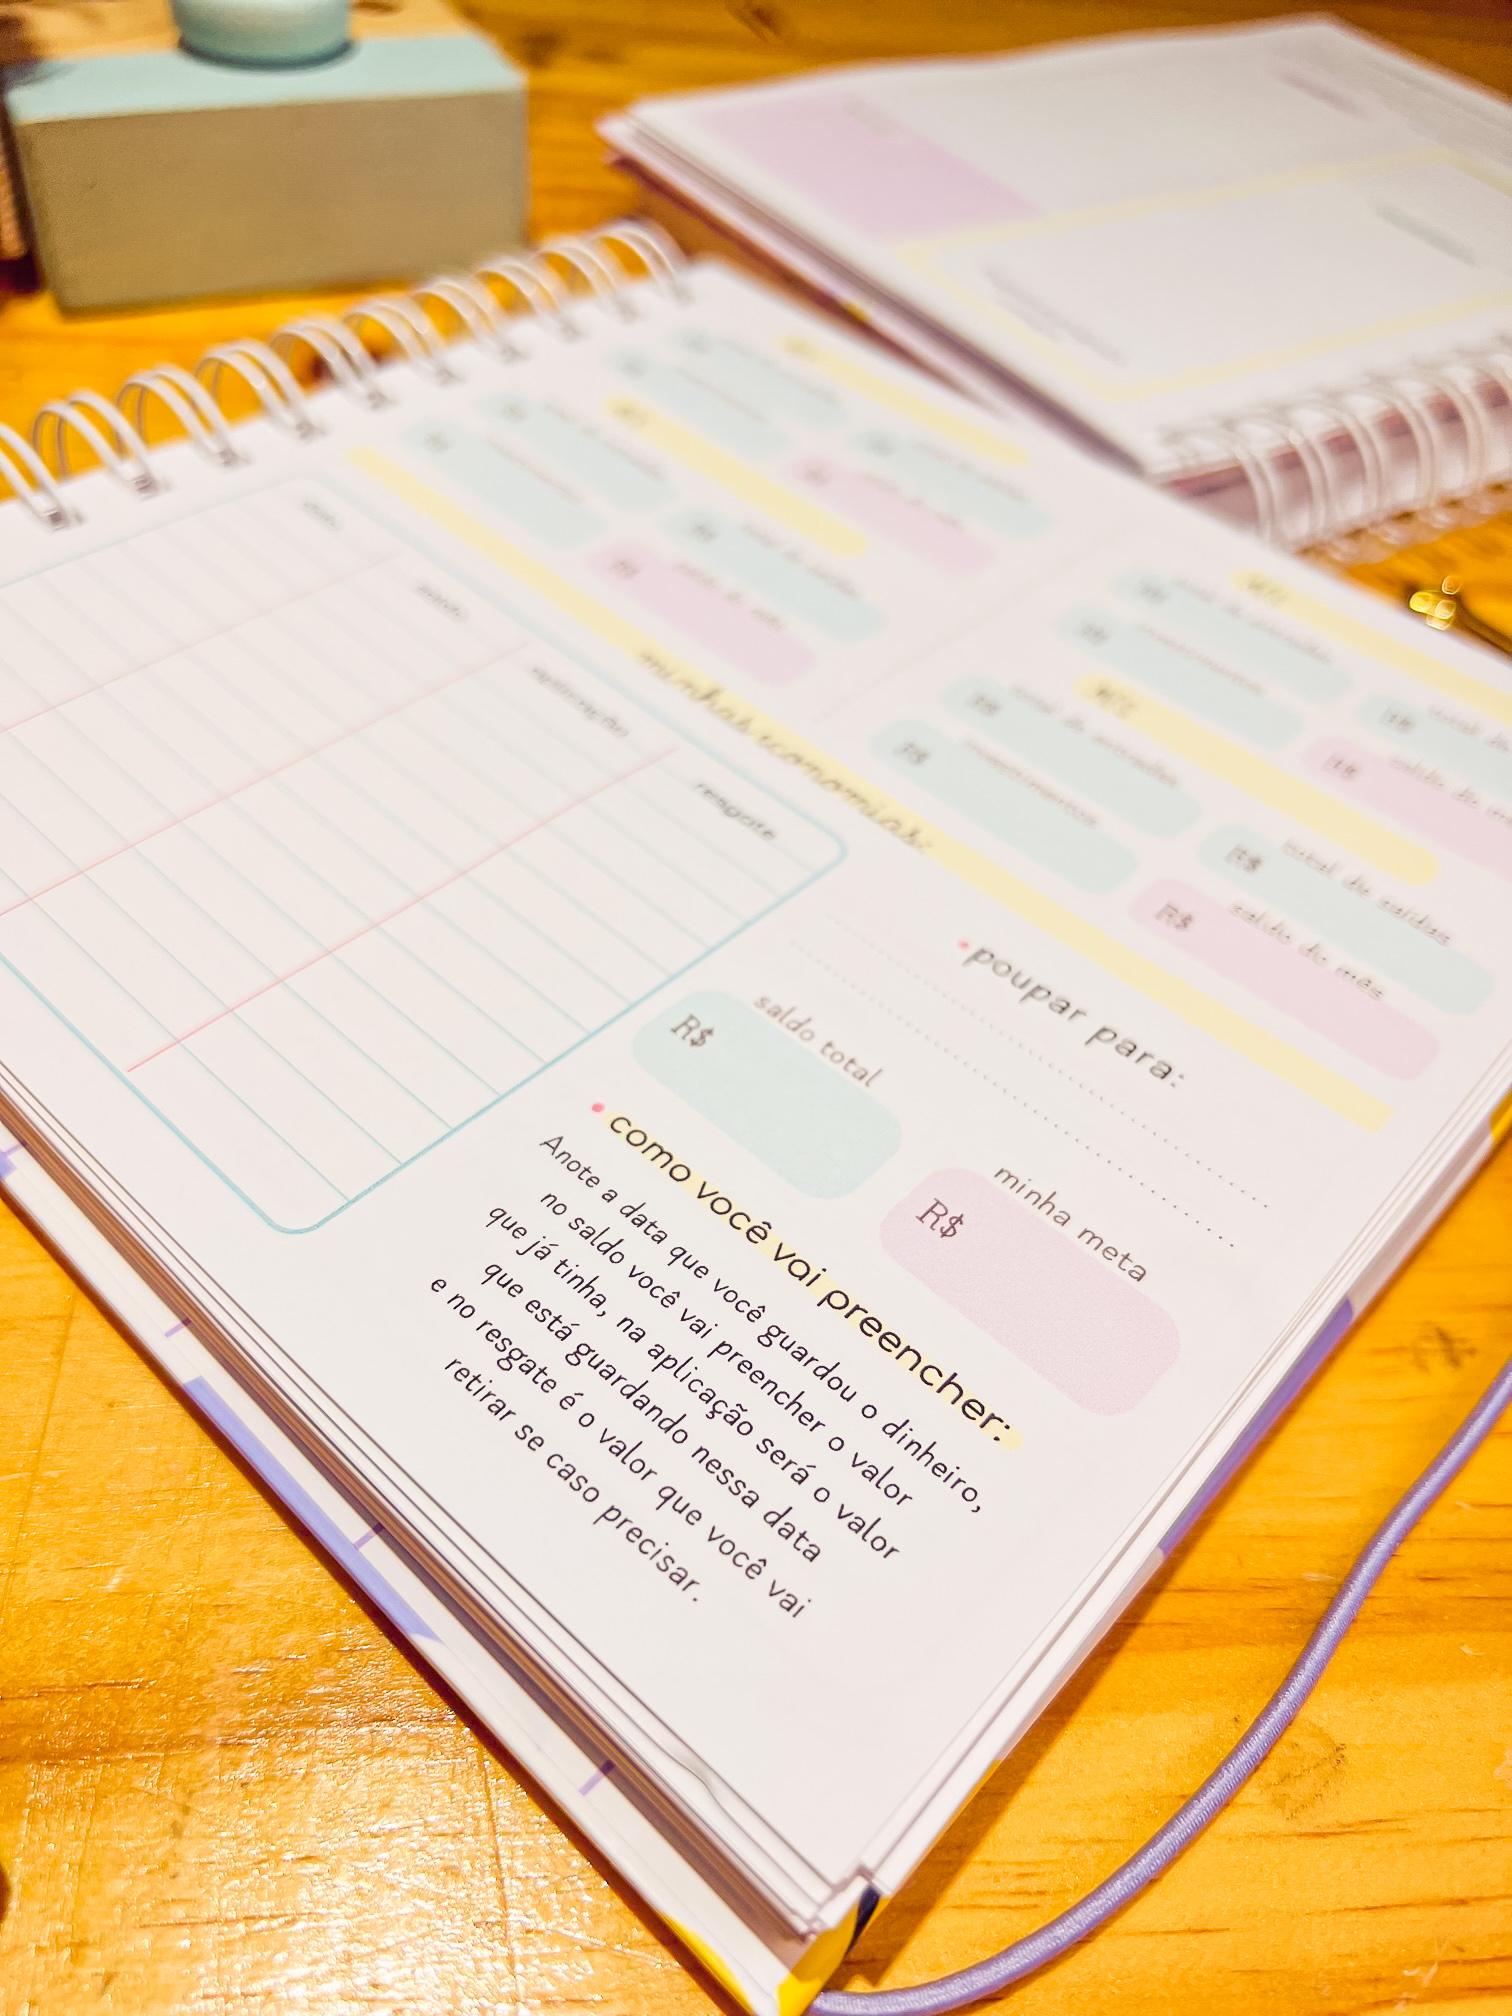 MÊS
MÊS
total de entradas
R$
investimentos
R$
total de saídas
R$
saldo do mês
R$
minhas economias:
data
saldo
aplicação
resgate
• poupar para:
saldo total
R$
minha meta
R$
• como você vai preencher:
Anote a data que você guardou o dinheiro,
no saldo você vai preencher o valor
que já tinha, na aplicação será o valor
que está guardando nessa data
e no resgate é o valor que você vai
retirar se caso precisar.